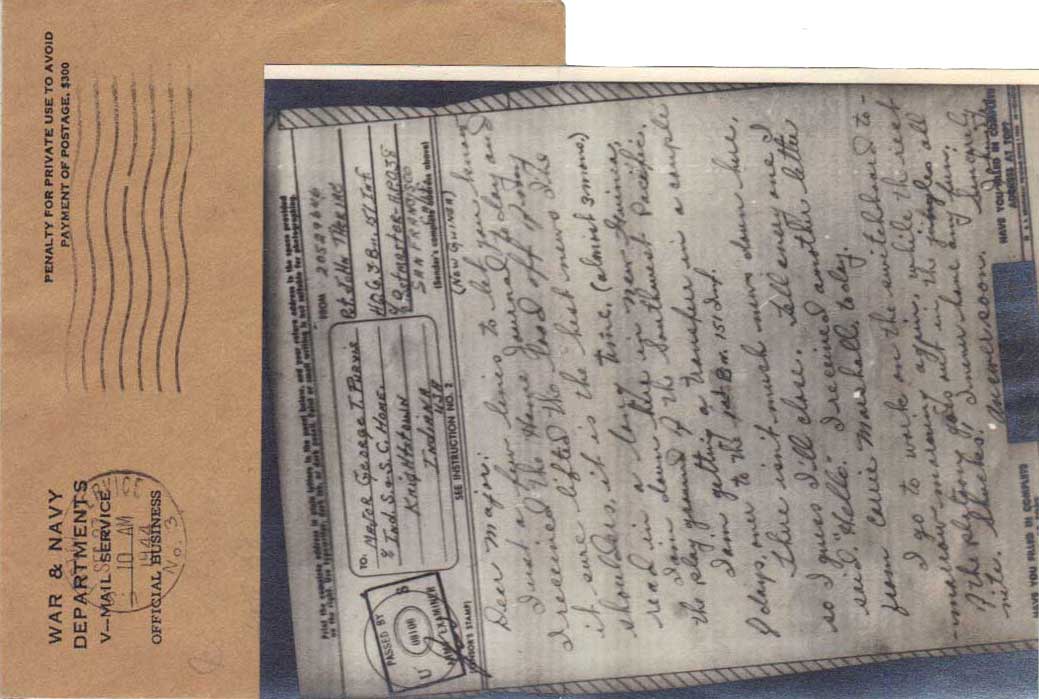 WAR & NAVY
DEPARTMENTS
V-MAIL SERVICE
OFFICIAL BUSINESS
PENALTY FOR PRIVATE USE TO AVOID
PAYMENT OF POSTAGE, $300
10 AM
1944
No. 3
Print the complete address in plain letters in the panel below, and your return address in the space provided
PASSED BY
U S
08108
ARMY EXAMINER
(CENSOR'S STAMP)
TO:
Major George T. Purvis
Ind. S. & S. C. Home.
Knightstown
Indiana
USA
SEE INSTRUCTION NO. 2
FROM 20529646
Pvt John
HQ Co 3 Bn. 151 Inf
Postmaster-APO 38
SAN FRANCISCO
(Sender's complete address above)
(New Guinea)
Dear Major:
Just a few lines to let you know
I received the Home Journal to day and
it sure lifted the load off of my
shoulders. it is the best news I've
read in a long time. (almost 3 mo.)
I am down here in New Guinea,
the playground of the Southwest Pacific.
I am getting a transfer in a couple
of days, over to the 1st Bn. 151 Inf.
There isn't much news down here,
so I guess I'll close. Tell every one I
said "Hello". I received another letter
from Carrie Marshall today.
I go to work on the switchboard to-
-morrow morning again, while the rest
of the platoon goes out in the jungles all
nite. Shucks, I never have any fun.
Answer soon. Sincerely
HAVE YOU FILLED IN COMPLETE
ADDRESS AT TOP?
HAVE YOU FILLED IN COMPLETE